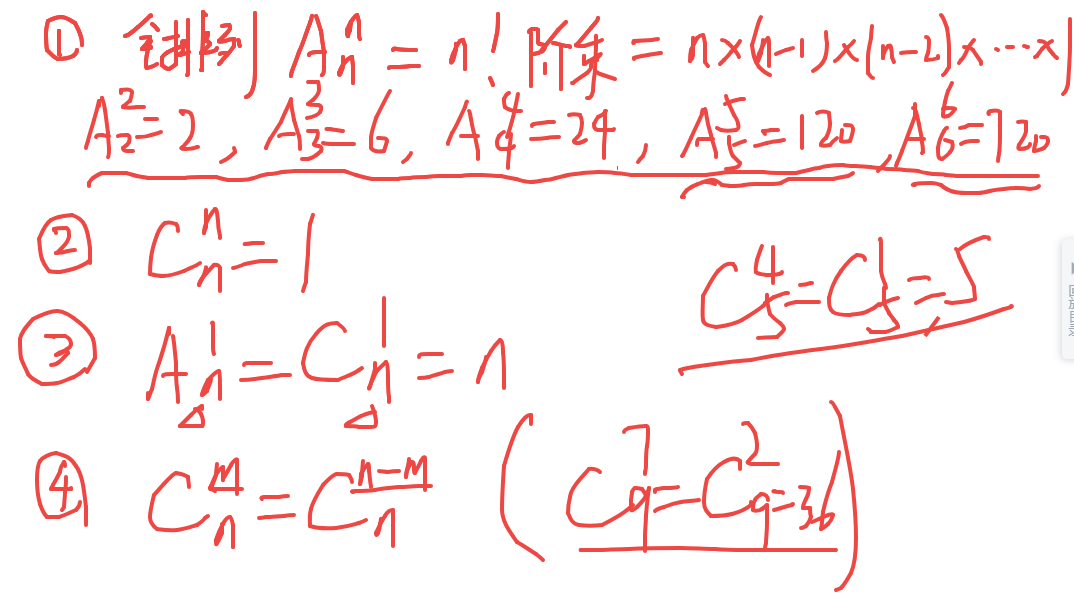 ① 全排列 Aₙⁿ = n! 阶乘 = n×(n-1)×(n-2)×…×1
A₂²=2, A₃³=6, A₄⁴=24, A₅⁵=120, A₆⁶=720
② Cₙⁿ=1
C₅⁴=C₅¹=5
③ Aₙ¹=Cₙ¹=n
④ Cₙᵐ=Cₙⁿ⁻ᵐ (C₉⁷=C₉²=36)